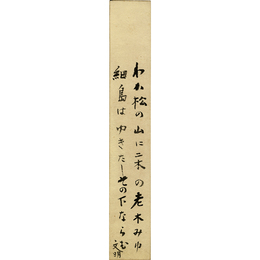 わか松の山に二木の老木みゆ
細島はゆきたし その下ならむ
文明